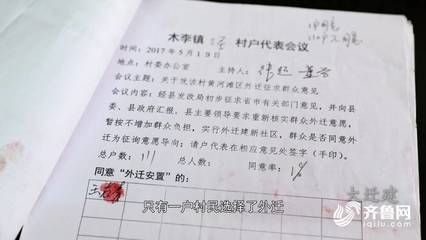 木李镇 村户代表会议
时间：2017年5月19日
地点：村委办公室 主持人：
会议主题：关于 村黄河滩区外迁征求群众意见
会议内容：经县发改局初步征求省市有关部门意见，并向县
委、县政府汇报，县主要领导要求重新核实群众外迁意愿，
暂按不增加群众负担，实行外迁建新社区，群众是否同意外
迁为征询意愿导向；请户代表在相应意见处签字（手印）。
总户数：111 总人数： 同意率：
同意“外迁安置”的：
只有一户村民选择了外迁
大迁建
齐鲁网